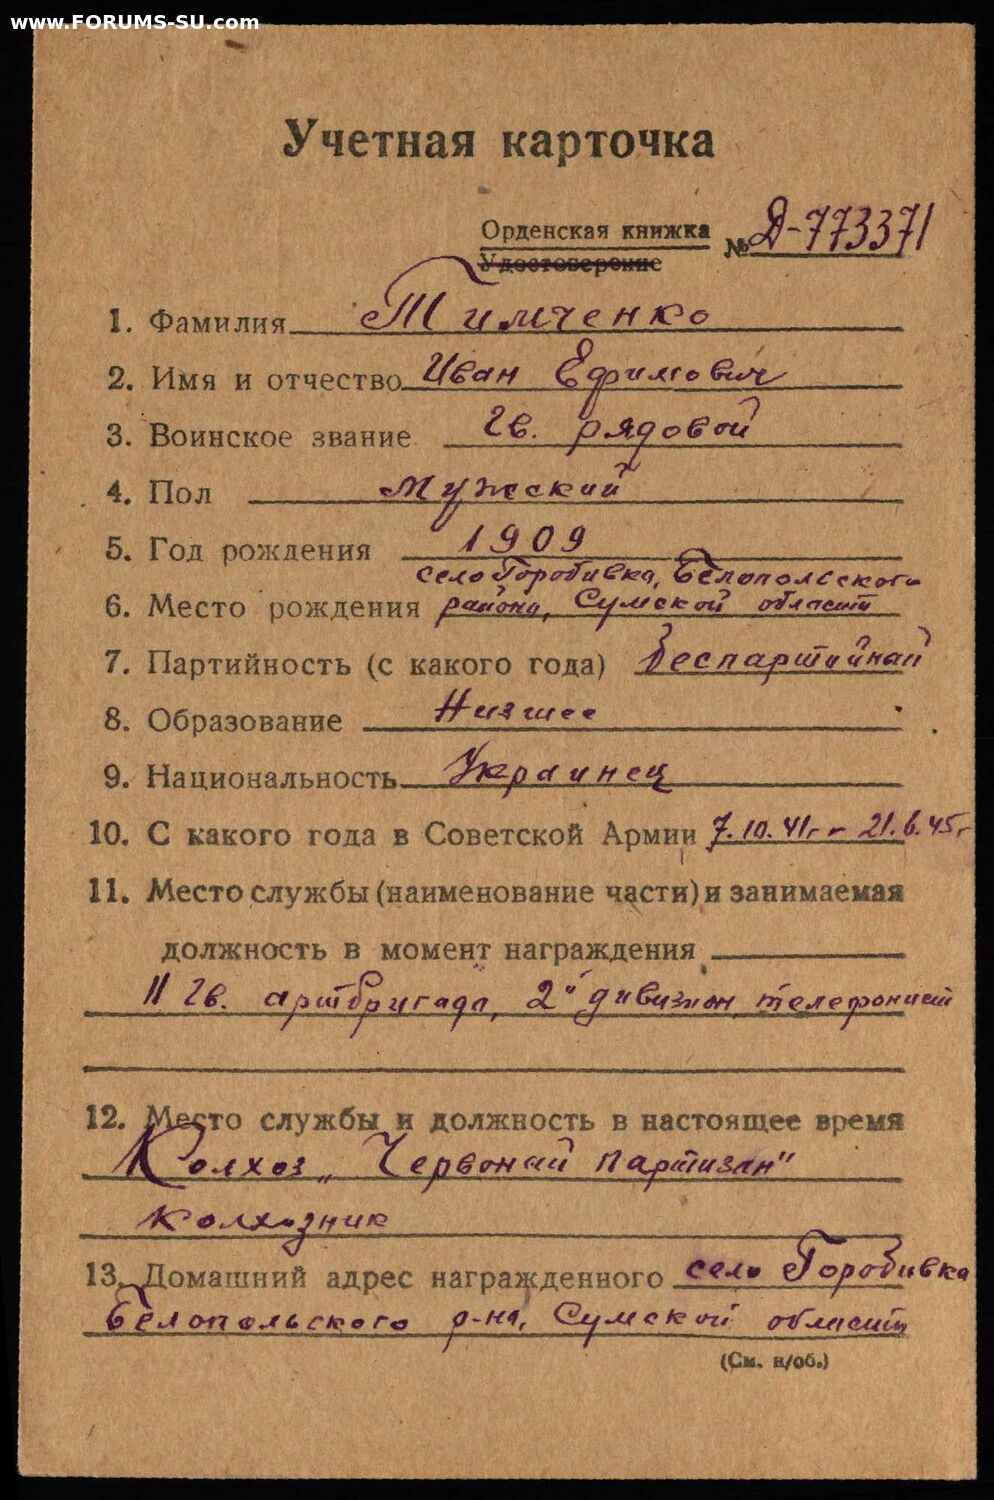 www.FORUMS-SU.com
Учетная карточка
Орденская книжка № Д-773371
Удостоверение
1. Фамилия Тимченко
2. Имя и отчество Иван Ефимович
3. Воинское звание Гв. рядовой
4. Пол мужской
5. Год рождения 1909
село Горобивка, Белопольского
6. Место рождения района, Сумской области
7. Партийность (с какого года) Беспартийный
8. Образование Низшее
9. Национальность Украинец
10. С какого года в Советской Армии 7.10.41г - 21.6.45г
11. Место службы (наименование части) и занимаемая
должность в момент награждения
11 Гв. артбригада, 2й дивизион, телефонист
12. Место службы и должность в настоящее время
Колхоз „Червоний партизан"
колхозник
13. Домашний адрес награжденного село Горобивка
Белопольского р-на, Сумской области
(См. н/об.)